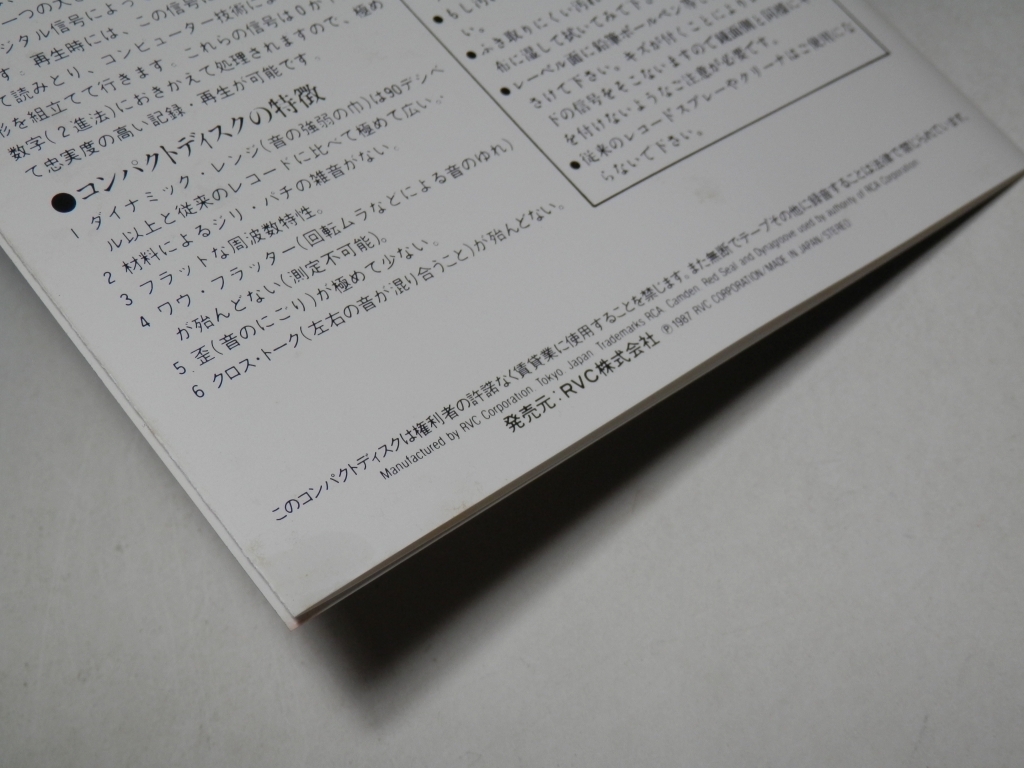 一つの大
ジタル信号によっ
す。再生時には、この信号
て読みとり、コンピューター技術によ
形を組立てて行きます。これらの信号は0か
数字(2進法)におきかえて処理されますので、極め
て忠実度の高い記録・再生が可能です。
●コンパクトディスクの特徴
1 ダイナミック・レンジ(音の強弱の巾)は90デシベ
ル以上と従来のレコードに比べて極めて広い。
2 材料によるジリ・パチの雑音がない。
3 フラットな周波数特性。
4 ワウ・フラッター(回転ムラなどによる音のゆれ)
が殆んどない(測定不可能)。
5. 歪(音のにごり)が極めて少ない。
6 クロス・トーク(左右の音が混り合うこと)が殆んどない。
●もし
い。
●ふき取りにくい汚れ
布に湿して拭いてみて下
●レーベル面に鉛筆ボールペン等
さけて下さい。キズが付くことにより
ドの信号をそこないますので鏡面側と同様にキ
を付けないようなご注意が必要です。
●従来のレコードスプレーやクリーナはご使用にな
らないで下さい。
このコンパクトディスクは権利者の許諾なく賃貸業に使用することを禁じます。また無断でテープその他に録音することは法律で禁じられています。
Manufactured by RVC Corporation, Tokyo, Japan. Trademarks RCA, Camden, Red Seal and Dynagroove used by authority of RCA Corporation
発売元：RVC株式会社 ℗1987 RVC CORPORATION/MADE IN JAPAN-STEREO